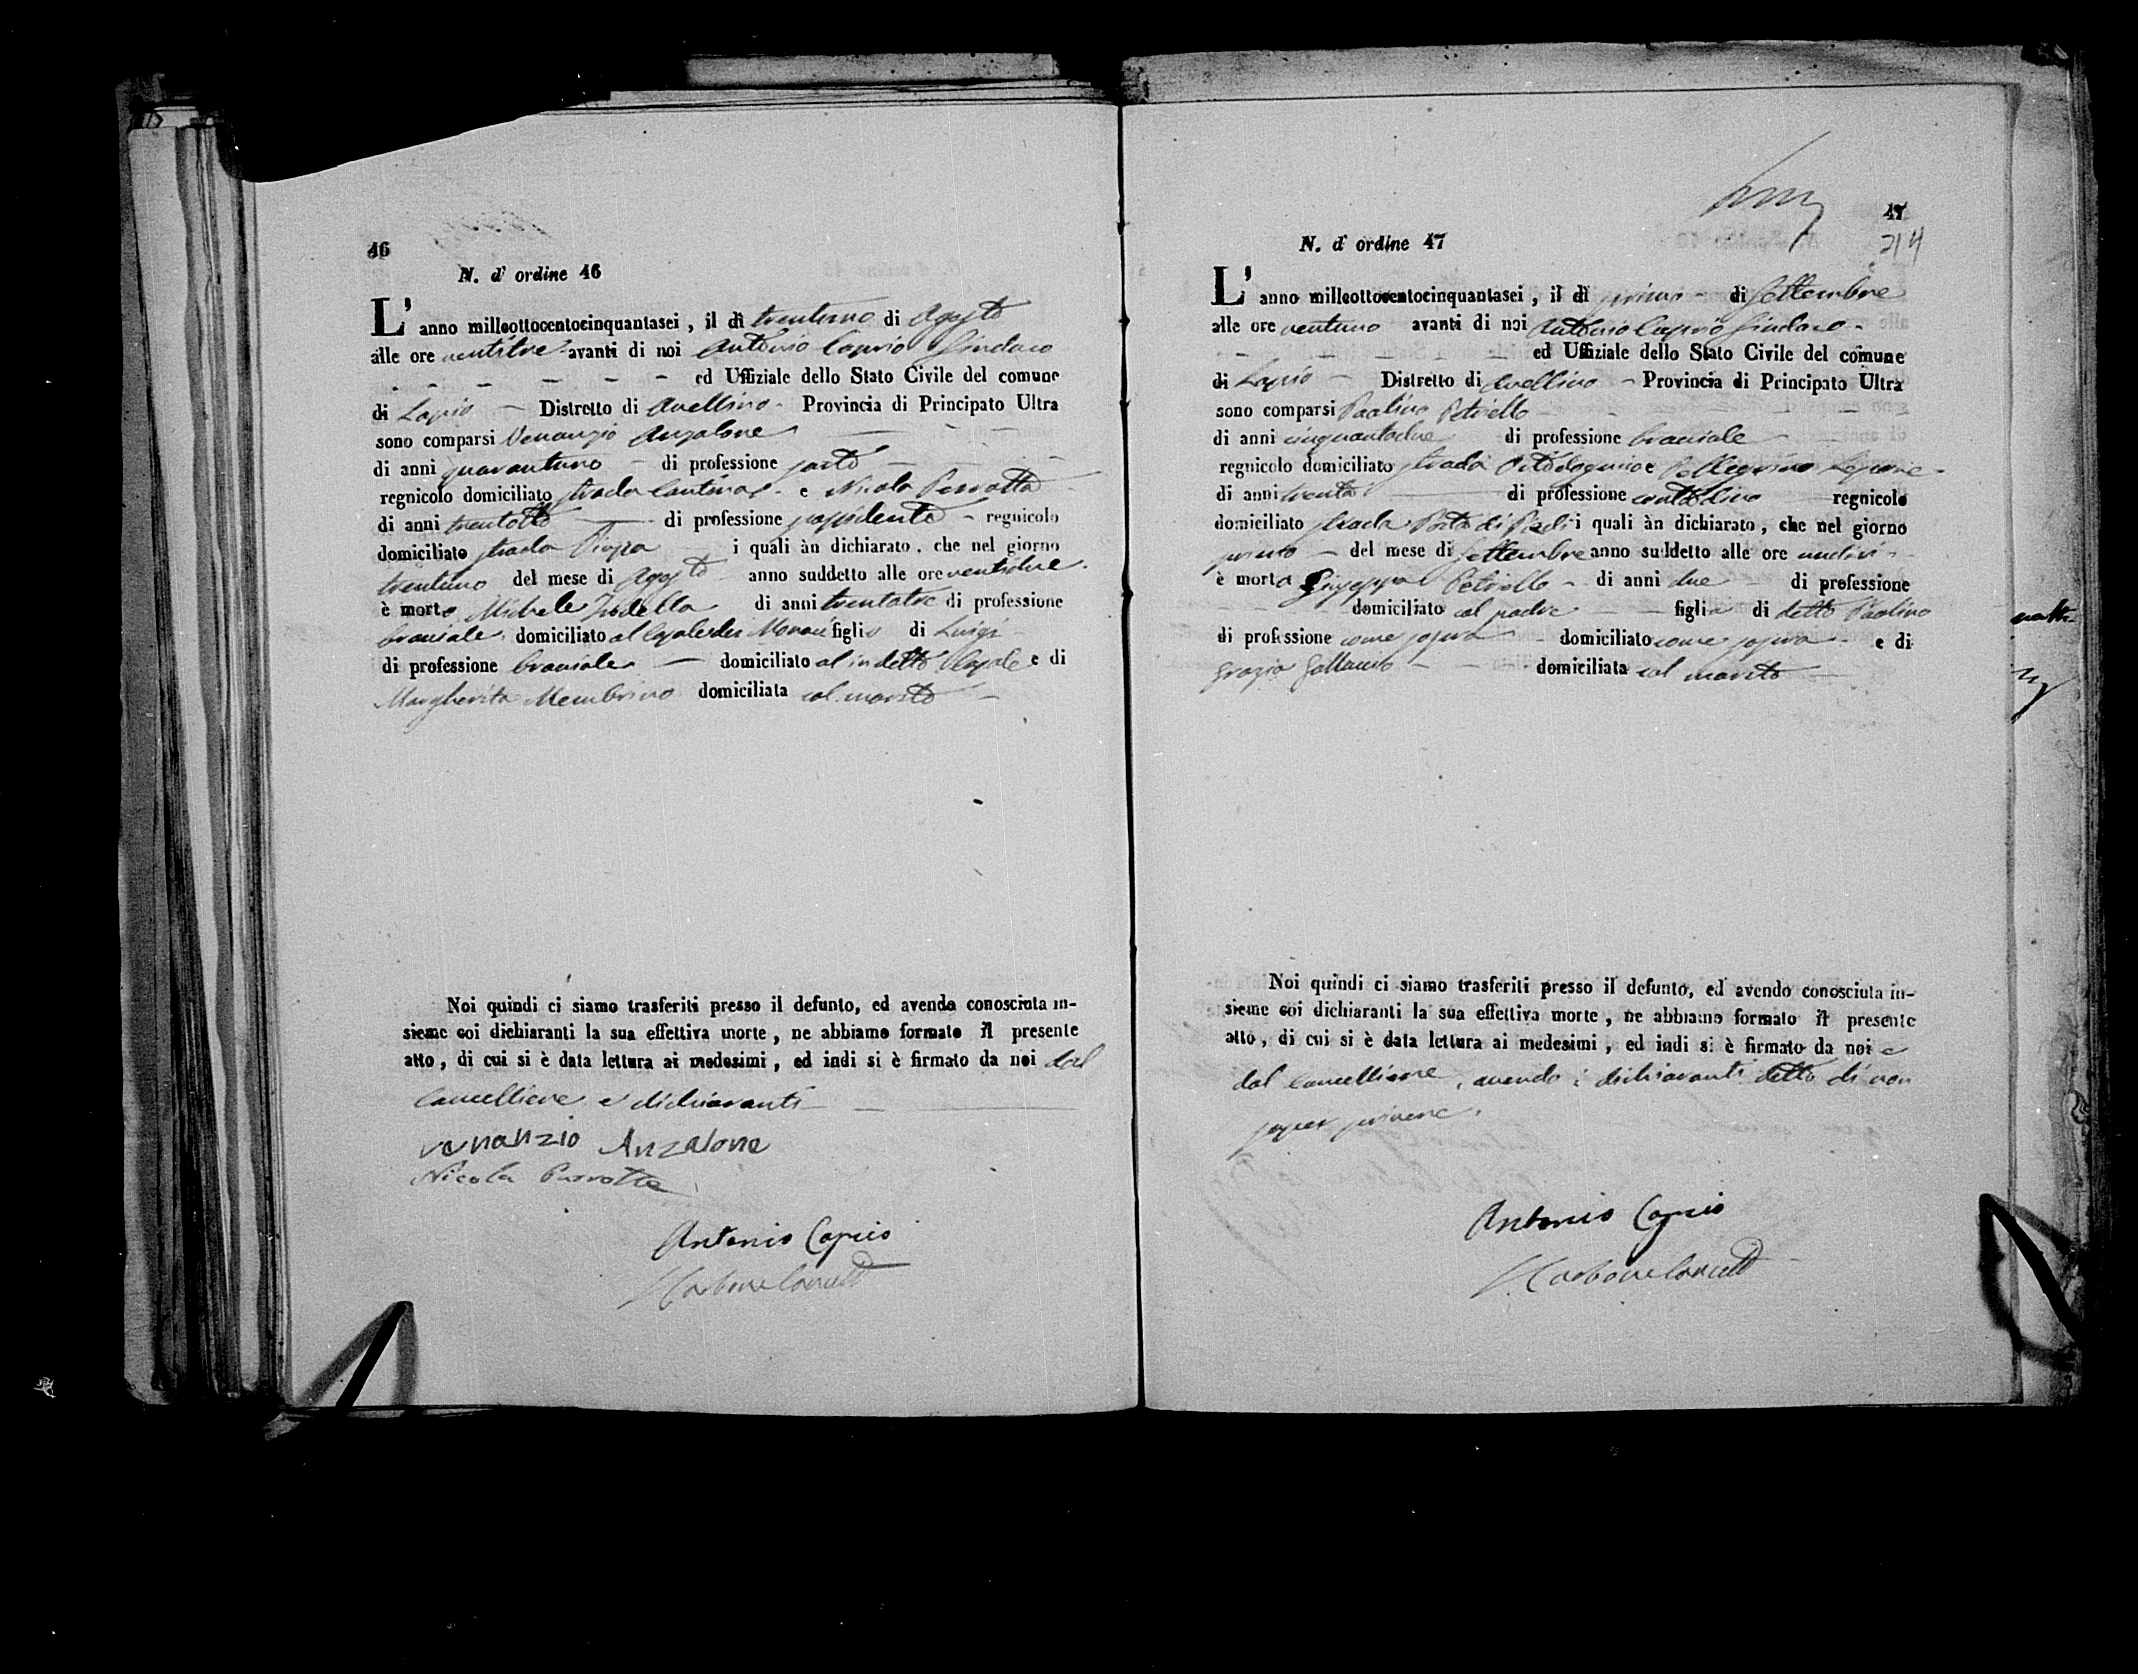 46
N. d' ordine 46
L' anno milleottocentocinquantasei, il dì trentuno di Agosto
alle ore ventitre avanti di noi Antonio Caprio Sindaco
ed Uffiziale dello Stato Civile del comune
di Lapio Distretto di Avellino Provincia di Principato Ultra
sono comparsi Venanzio Anzalone
di anni quarantuno di professione sarto
regnicolo domiciliato strada e Nicola Perrotta
di anni trentotto di professione possidente regnicolo
domiciliato strada Piazza i quali àn dichiarato, che nel giorno
trentuno del mese di Agosto anno suddetto alle ore ventidue
è morto Michele di anni trentatre di professione
bracciale domiciliato al Casale dei figlio di Luigi
di professione bracciale domiciliato al indetto Casale e di
Margherita Membrino domiciliata col marito
Noi quindi ci siamo trasferiti presso il defunto, ed avendo conosciuta in-
sieme coi dichiaranti la sua effettiva morte, ne abbiamo formato il presente
atto, di cui si è data lettura ai medesimi, ed indi si è firmato da noi dal
Cancelliere e dichiaranti
venanzio Anzalone
Nicola Perrotta
Antonio Caprio
Carbone
47
214
N. d' ordine 47
L' anno milleottocentocinquantasei, il dì primo di Settembre
alle ore ventuno avanti di noi Antonio Caprio Sindaco
ed Uffiziale dello Stato Civile del comune
di Lapio Distretto di Avellino Provincia di Principato Ultra
sono comparsi Paolino Petriello
di anni cinquantadue di professione bracciale
regnicolo domiciliato strada e Pellegrino
di anni trenta di professione contadino regnicolo
domiciliato strada Porta di i quali àn dichiarato, che nel giorno
primo del mese di Settembre anno suddetto alle ore undici
è morta Giuseppa Petriello di anni due di professione
domiciliato col padre figlia di detto Paolino
di professione come sopra domiciliato come sopra e di
Grazia domiciliata col marito
Noi quindi ci siamo trasferiti presso il defunto, ed avendo conosciuta in-
sieme coi dichiaranti la sua effettiva morte, ne abbiamo formato il presente
atto, di cui si è data lettura ai medesimi, ed indi si è firmato da noi e
dal Cancelliere, avendo i dichiaranti detto di non
saper scrivere.
Antonio Caprio
Carbone